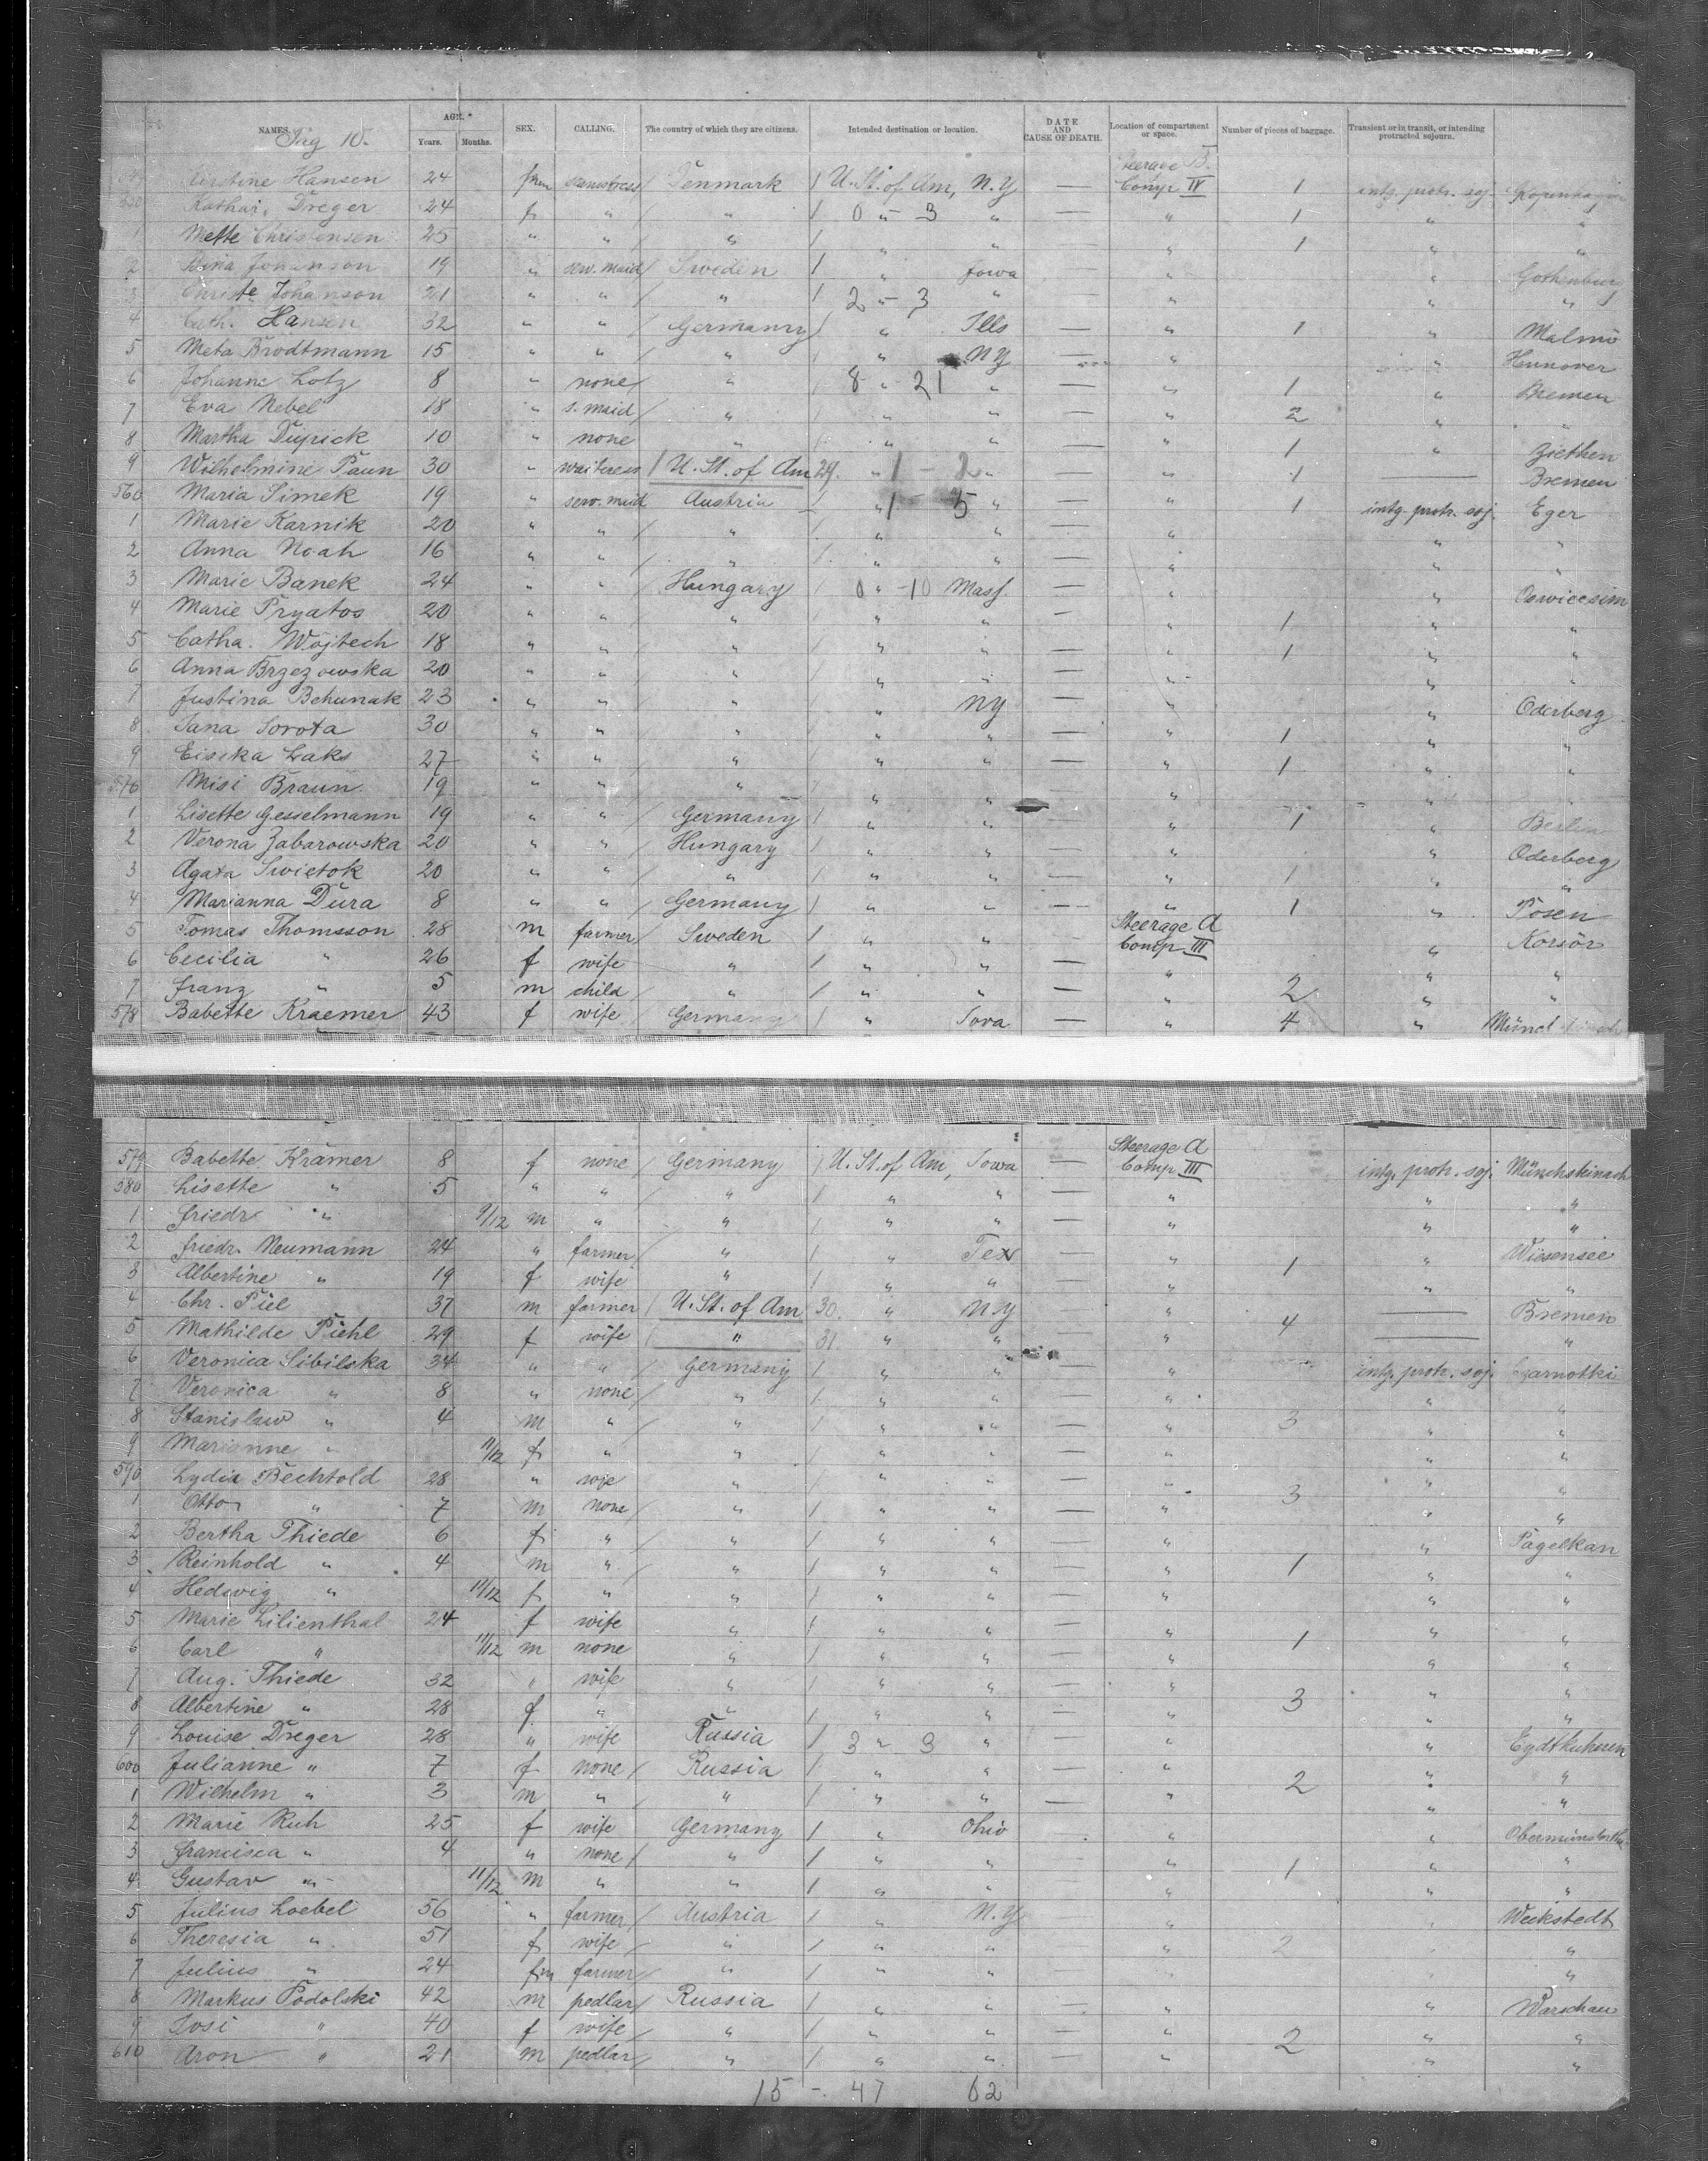 NAMES. AGE. Years. Months. SEX. CALLING. The country of which they are citizens. Intended destination or location. DATE AND CAUSE OF DEATH. Location of compartment or space. Number of pieces of baggage. Transient or in transit, or intending protracted sojourn.
10.
Hansen 24 seamstress Denmark / U. St. of Am, N.Y — Steerage B. Comp IV 1 intg. protr. soj.
Dreger 24 " " " / 0 " - 3 " — " 1 " "
1 Mette Christensen 25 " " " / " " — " 1 " "
2 Johanson 19 " serv. maid / Sweden / " Iowa — " " Gothenburg
3 Johanson 21 " " " / 2 " - 3 " — " " "
4 Cath. Hansen 32 " " Germany / " Ills — " 1 " Malmö
5 Meta Brodtmann 15 " " " / " NY — " " Hannover
6 Johanne Lotz 8 " none / " / 8 " - 21 " — " 1 " Bremen
7 Eva Nebel 18 " s. maid / " / " " — " 2 " "
8 Martha Dupick 10 " none " / " " — " 1 " Ziethen
9 Wilhelmine Paun 30 " waitress / U. St. of Am 29. " 1 - 2 " — " 1 — Bremen
560 Maria Simek 19 " serv. maid Austria / " 1 - 5 " — " 1 intg. protr. soj. Eger
1 Marie Karnik 20 " " " / " " — " " "
2 Anna Noah 16 " " " / " " — " " "
3 Marie Banek 24 " " Hungary / 0 " - 10 Mass. — " "
4 Marie Pryatos 20 " " " / " " - " 1 " "
5 Catha. Wojtech 18 " " " / " " — " 1 " "
6 Anna Brzezowska 20 " " " / " " — " " "
7 Justina Behunak 23 " " " / " NY — " " Oderberg
8 Sorota 30 " " " / " " — " 1 " "
9 Laks 27 " " " / " " — " 1 " "
570 Misi Braun 19 " " " / " " " " "
1 Lisette Gesselmann 19 " " Germany / " " — " 1 " Berlin
2 Verona Zabarowska 20 " " Hungary / " " — " " Oderberg
3 Agata Swietok 20 " " " / " " — " 1 " "
4 Marianna Dura 8 " " Germany / " " — " 1 " Posen
5 Tomas Thomsson 28 m farmer / Sweden / " " — Steerage A Comp III " Korsör
6 Cecilia " 26 f wife " / " " — " " "
7 Franz " 5 m child " / " " — " 2 " "
578 Babette Kraemer 43 f wife / Germany / " Iova — " 4 "
579 Babette Krämer 8 f none / Germany / U. St. of Am, Iowa — Steerage A Comp III intg. protr. soj. Münchsteinach
580 Lisette " 5 " " " / " " — " " "
1 Friedr " 9/12 m " " / " " — " " "
2 Friedr. Neumann 24 " farmer " / " Tex — " 1 " Wiesensee
3 Albertine " 19 f wife " / " " — " " "
4 Chr. Piel 37 m farmer / U. St. of Am 30. " NY " 4 — Bremen
5 Mathilde Piehl 29 f wife / " 31. " " — " — "
6 Veronica Sibilska 34 " " Germany / " " " intg. protr. soj. Czarnotki
7 Veronica " 8 " none / " / " " " " "
8 Stanislaw " 4 m " " / " " — " 3 " "
9 Marianne " 11/12 f " " / " " — " " "
590 Lydia Bechtold 28 " wife " / " " — " 3 " "
1 Otto " 7 m none / " / " " — " " "
2 Bertha Thiede 6 f " " / " " — " " Pagelkan
3 Reinhold " 4 m " " / " " — " 1 " "
4 Hedwig " 11/12 f " " / " " — " " "
5 Marie Lilienthal 24 f wife " / " " — " 1 " "
6 Carl " 11/12 m none " / " " — " " "
7 Aug. Thiede 32 " wife " / " " — " 3 " "
8 Albertine " 28 f " " / " " — " " "
9 Louise Dreger 28 " wife Russia / 3 " 3 " — " " Eydtkuhnen
600 Julianne " 7 f none / Russia / " " — " 2 " "
1 Wilhelm " 3 m " " / " " — " " "
2 Marie Ruh 25 f wife Germany / " Ohio " "
3 Francisca " 4 " none / " / " " " 1 " "
4 Gustav " 11/12 m " " / " " " " "
5 Julius Loebel 56 " farmer / Austria / " N.Y " " Weckstedt
6 Theresia " 51 f wife " / " " " 2 " "
7 Julius " 24 fm farmer / " / " " "
8 Markus Podolski 42 m pedlar / Russia / " " — " " Warschau
9 Josi " 40 f wife / " / " " — " 2 " "
610 Aron " 21 m pedlar / " / " " — " " "
15 - 47 62